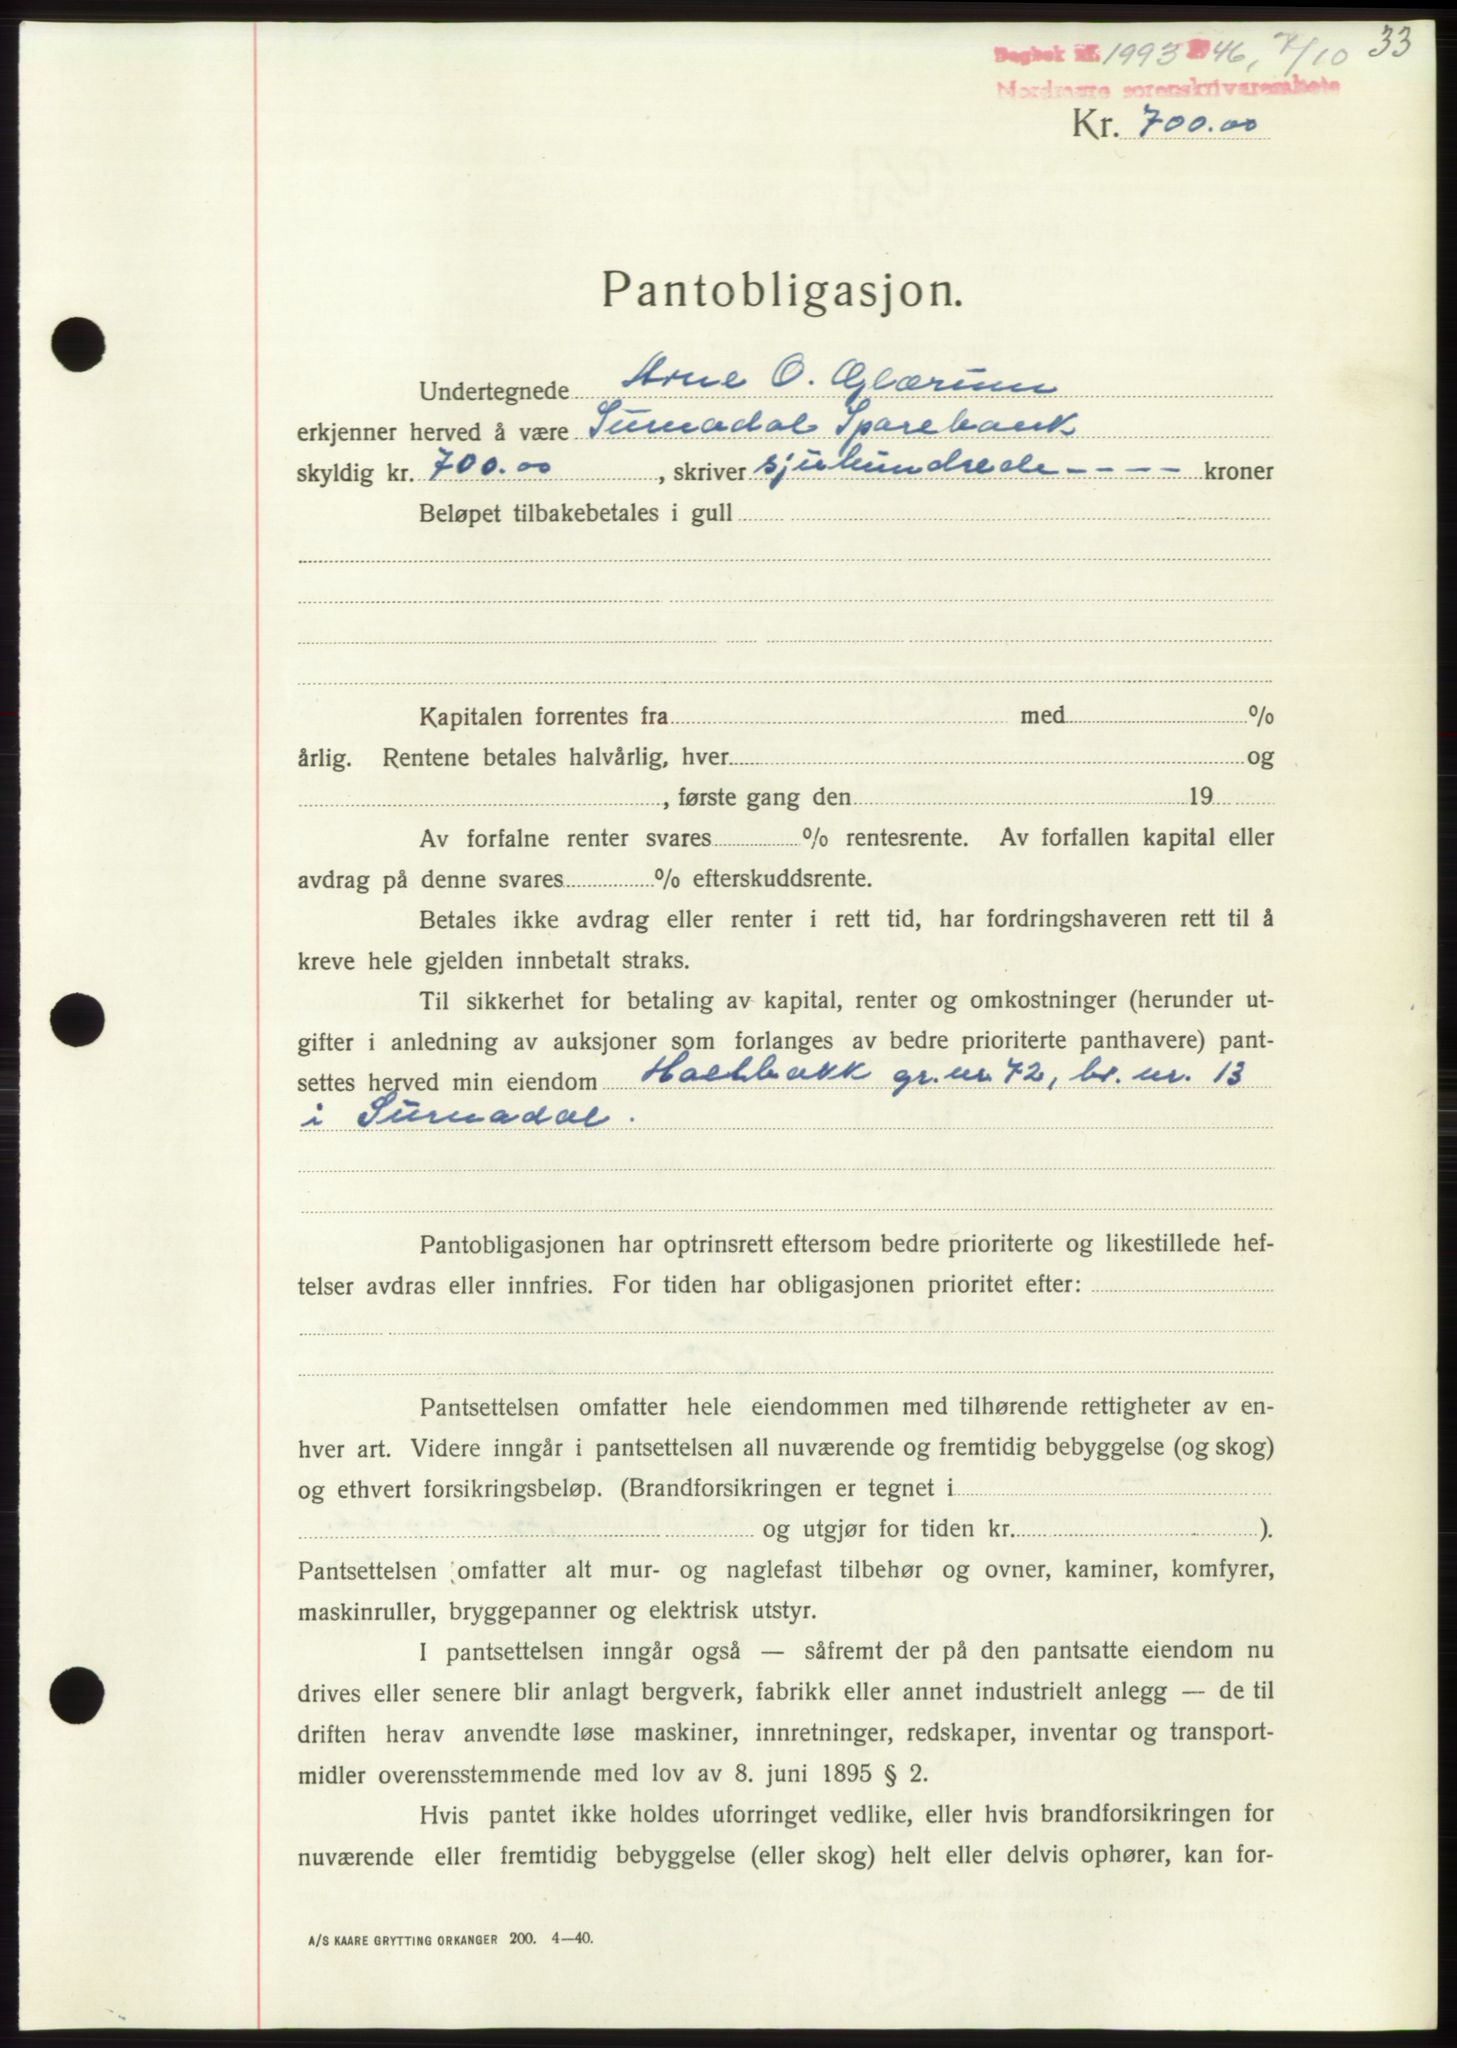 33
Dagbok nr. 1993 1946, 7/10
Nordmøre sorenskriverembete
Kr. 700.00
Pantobligasjon.
Undertegnede Arne O. Glærum
erkjenner herved å være Surnadal Sparebank
skyldig kr. 700.00, skriver sjuhundrede - - - - kroner
Beløpet tilbakebetales i gull
Kapitalen forrentes fra med %
årlig. Rentene betales halvårlig, hver og
, første gang den 19
Av forfalne renter svares % rentesrente. Av forfallen kapital eller
avdrag på denne svares % efterskuddsrente.
Betales ikke avdrag eller renter i rett tid, har fordringshaveren rett til å
kreve hele gjelden innbetalt straks.
Til sikkerhet for betaling av kapital, renter og omkostninger (herunder ut-
gifter i anledning av auksjoner som forlanges av bedre prioriterte panthavere) pant-
settes herved min eiendom Holtbakk gr. nr. 72, br. nr. 13
i Surnadal.
Pantobligasjonen har optrinsrett eftersom bedre prioriterte og likestillede hef-
telser avdras eller innfries. For tiden har obligasjonen prioritet efter:
Pantsettelsen omfatter hele eiendommen med tilhørende rettigheter av en-
hver art. Videre inngår i pantsettelsen all nuværende og fremtidig bebyggelse (og skog)
og ethvert forsikringsbeløp. (Brandforsikringen er tegnet i
og utgjør for tiden kr. ).
Pantsettelsen omfatter alt mur- og naglefast tilbehør og ovner, kaminer, komfyrer,
maskinruller, bryggepanner og elektrisk utstyr.
I pantsettelsen inngår også — såfremt der på den pantsatte eiendom nu
drives eller senere blir anlagt bergverk, fabrikk eller annet industrielt anlegg — de til
driften herav anvendte løse maskiner, innretninger, redskaper, inventar og transport-
midler overensstemmende med lov av 8. juni 1895 § 2.
Hvis pantet ikke holdes uforringet vedlike, eller hvis brandforsikringen for
nuværende eller fremtidig bebyggelse (eller skog) helt eller delvis ophører, kan for-
A/S KAARE GRYTTING ORKANGER 200. 4—40.